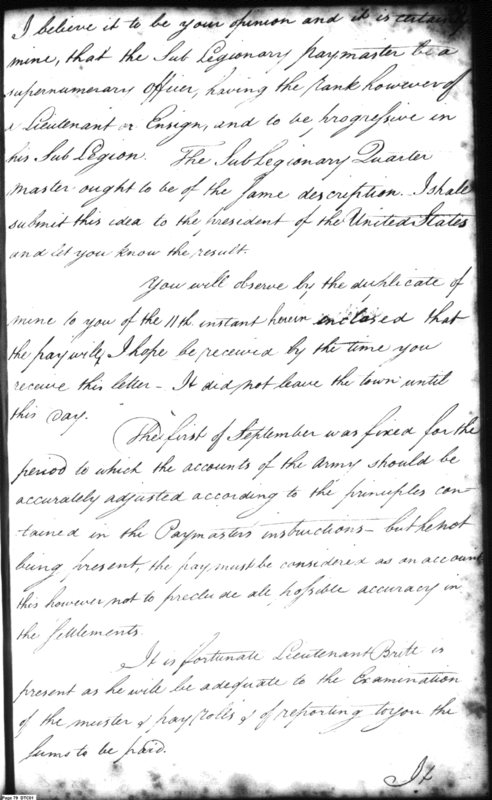 I believe it to be your opinion and it is certainly
mine, that the Sub Legionary paymaster be a
supernumerary officer, having the rank however of
a Lieutenant or Ensign, and to be progressive in
his Sub Legion. The Sub Legionary Quarter
master ought to be of the same description. I shall
submit this idea to the president of the United States
and let you know the result.
You will observe by the duplicate of
mine to you of the 11th instant herein enclosed that
the pay will, I hope be received by the time you
receive this letter - It did not leave the town until
this day.
The first of September was fixed for the
period to which the accounts of the army should be
accurately adjusted according to the principles con-
tained in the Paymasters instructions - but he not
being present, the pay must be considered as on account
this however not to preclude all possible accuracy in
the settlements.
It is fortunate Lieutenant Britt is
present as he will be adequate to the Examination
of the muster & pay rolls & of reporting to you the
sums to be paid.
It
Page 78 DTC01